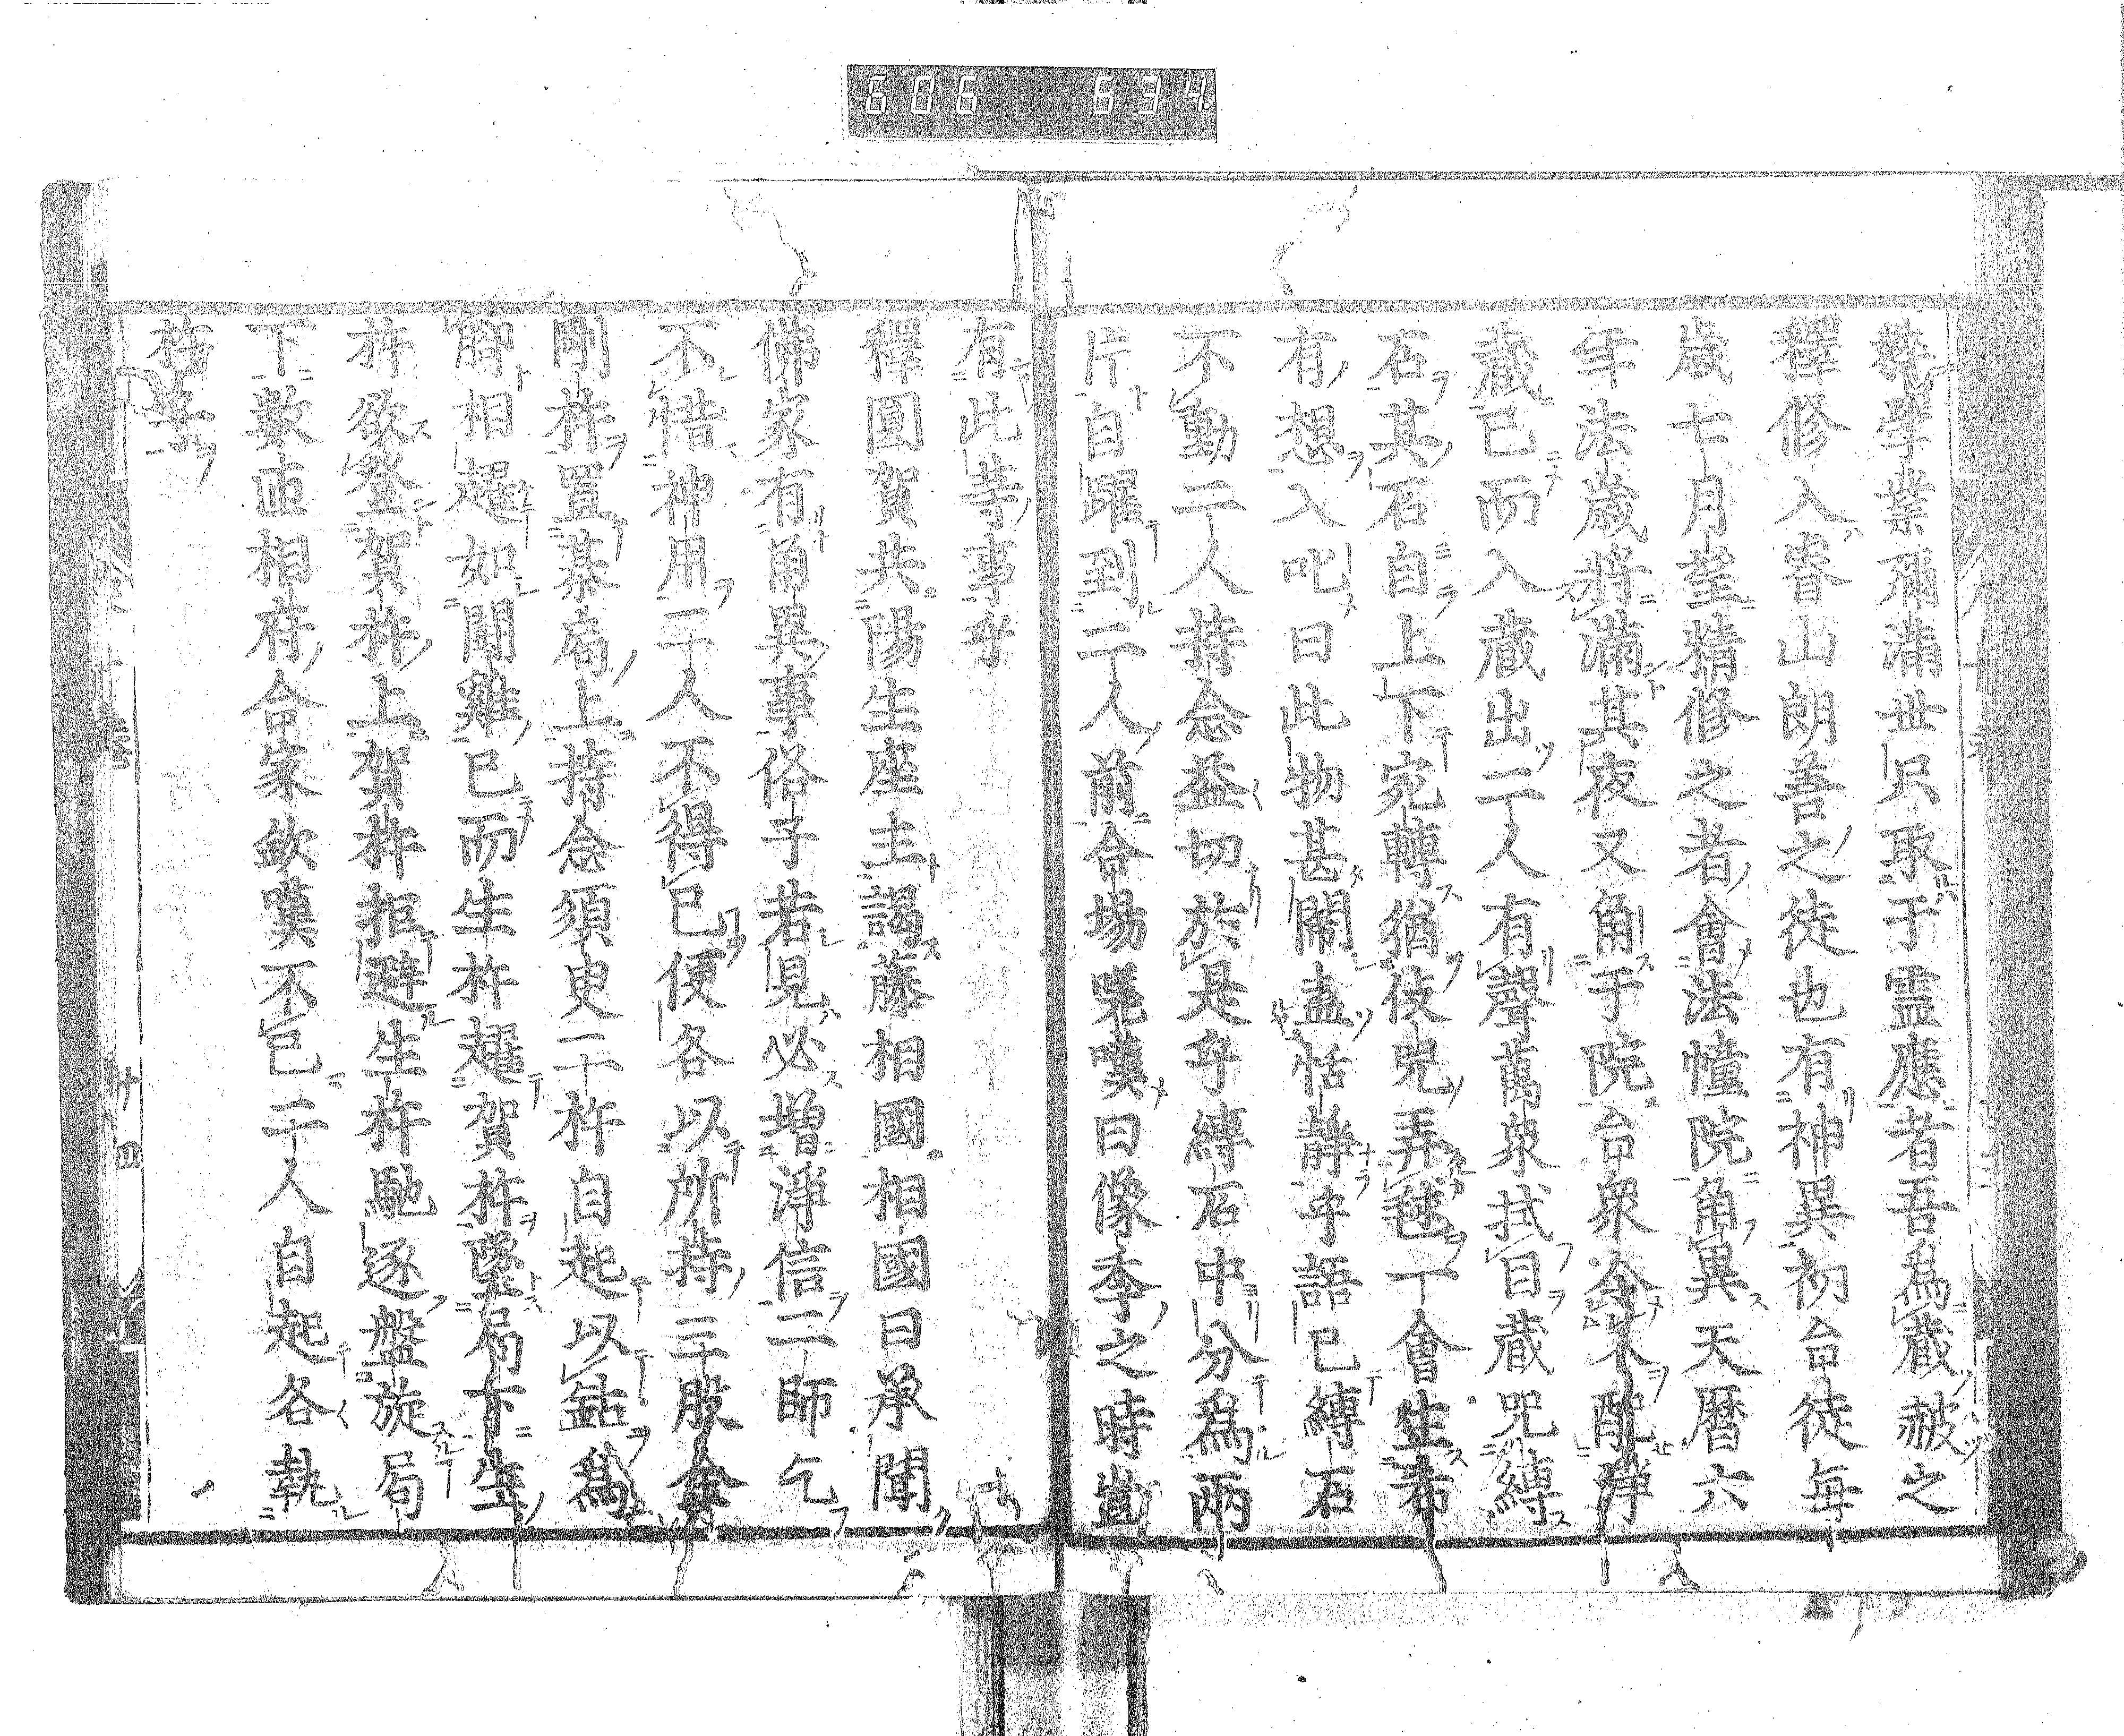 606 634
然學業彌滿世只取于靈應者吾爲藏赧之
釋修入睿山朗善之徒也有神異初台徒每
歲七月望精修之者會法幢院角異天曆六
年法歲將滿其夜又角于院台衆令朱配淨
藏已而入藏出二人有聲萬衆拭目藏咒縛
石其石自上下宛轉猶伎兒弄毬丁會生希
有想入叱曰此物甚閙盍恬靜乎語已縛石
不動二人持念益切於是乎縛石中分爲兩
片自躍到二人前合場嗟嘆曰像季之時豈
有此等事乎
釋圓賀共陽生座主謁藤相國相國曰承聞
佛家有角異事俗子若見必增淨信二師乞
不惜神用二人不得已便各以所持三股金
剛杵置棊局上持念須臾二杵自起以鈷爲
脚相趯如鬪雞已而生杵趯賀杵墜局下生
杵欲登賀杵上賀杵拒避生杵馳逐盤旋局
下數匝相府合家欽嘆不已二人自起各執
杵去
十四